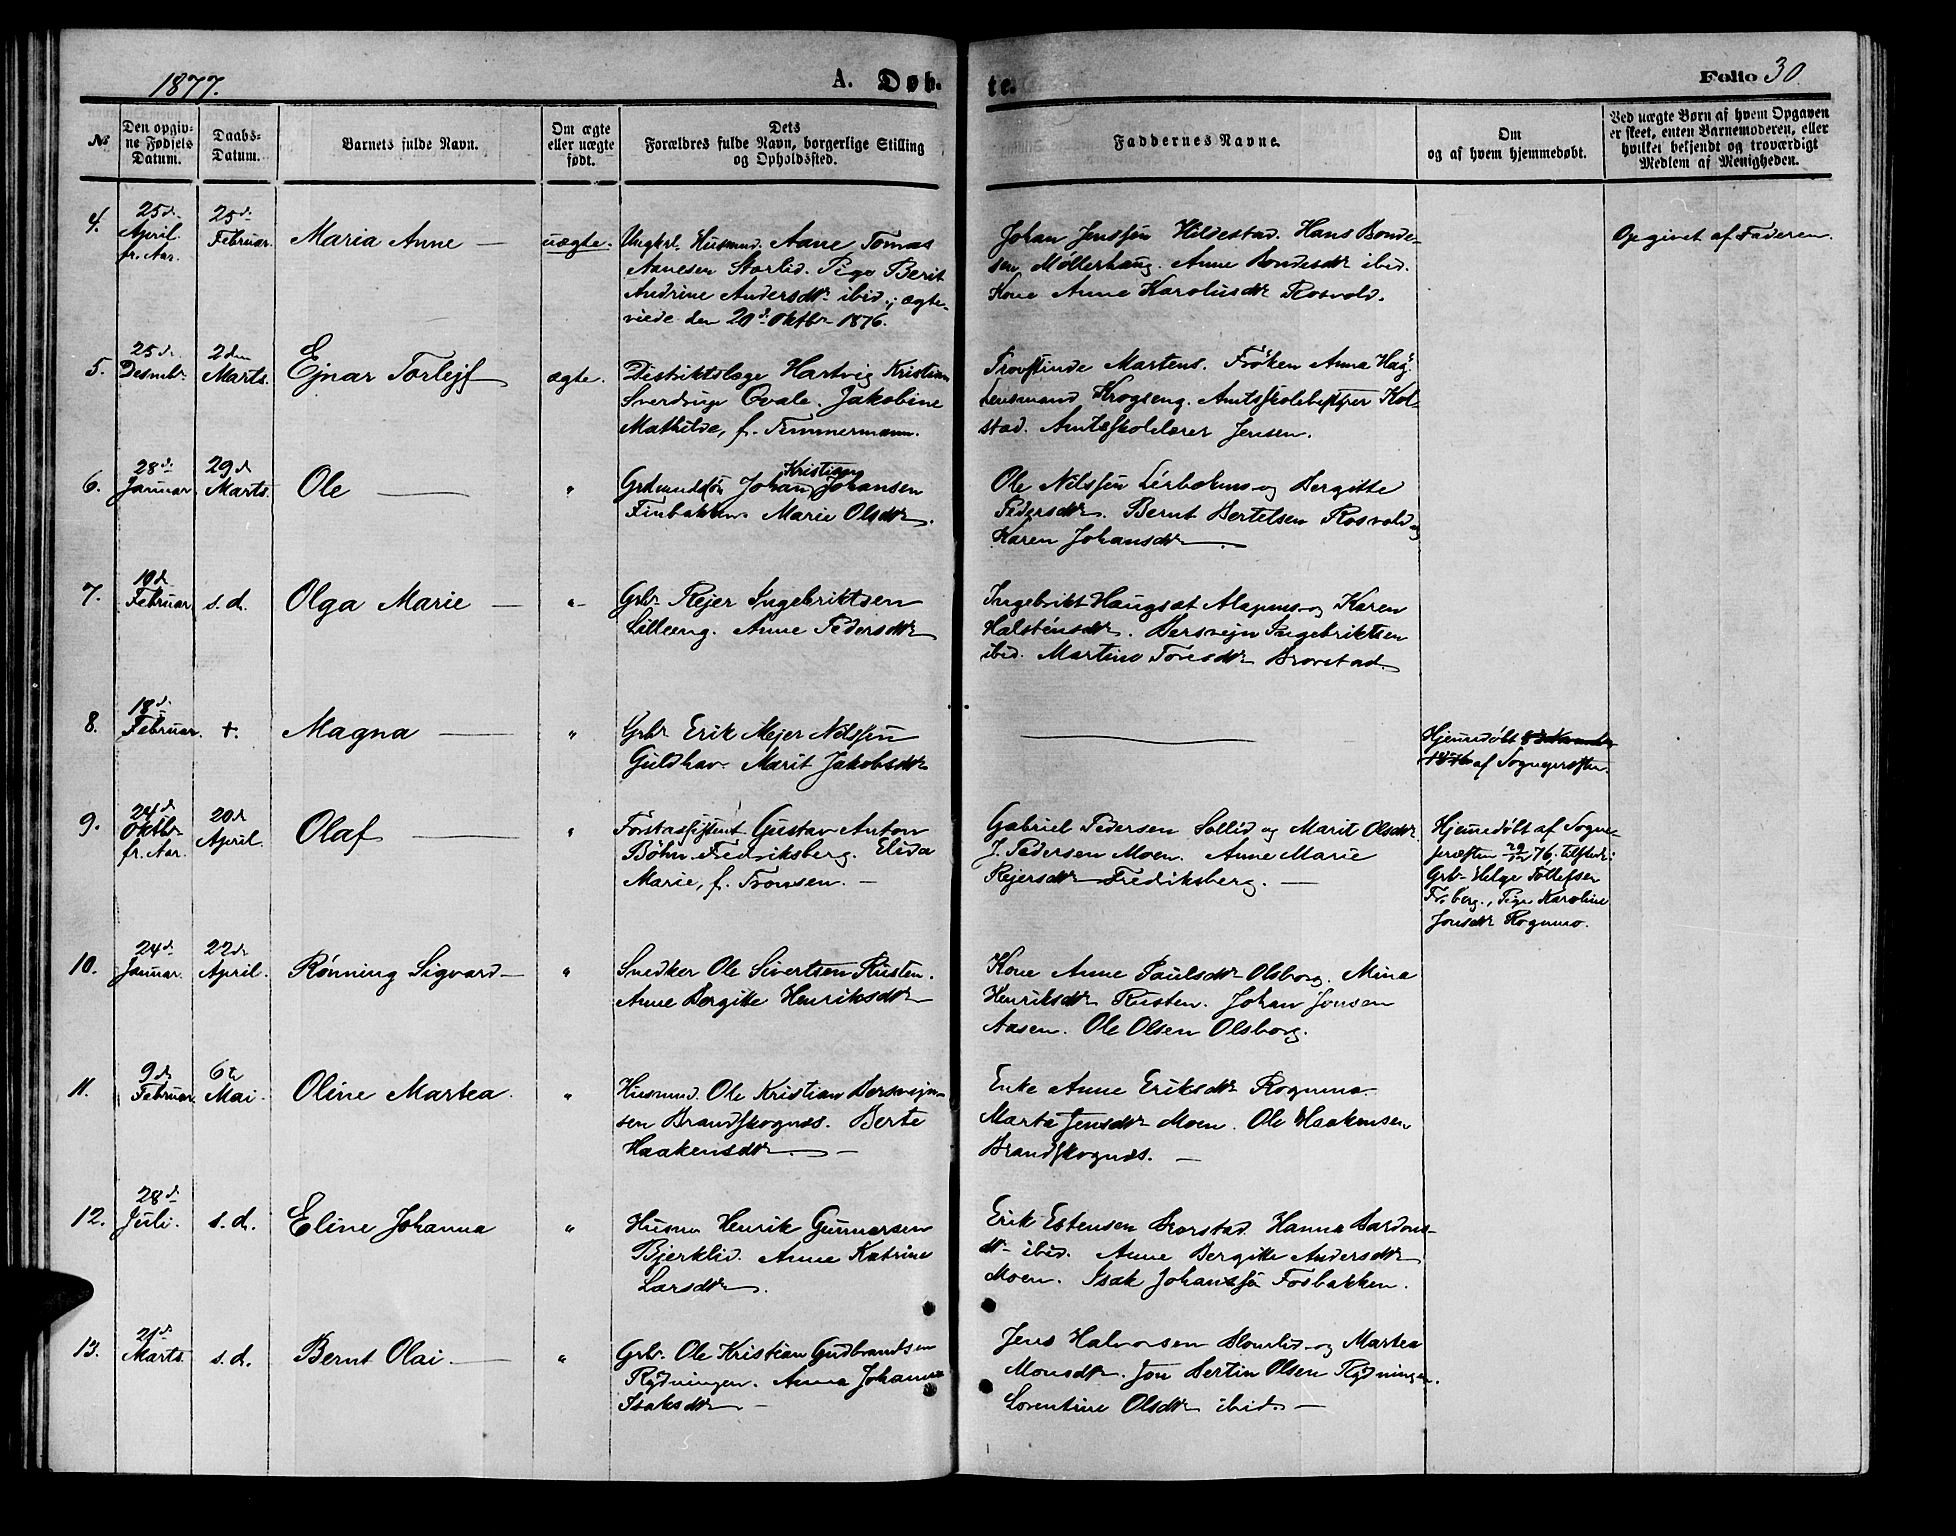 1877.
A. Døb-
te.
Folio 30
№
Den opgiv-
ne Fødsels
Datum.
Daabs-
Datum.
Barnets fulde Navn.
Om ægte
eller uægte
født.
Dets
Forældres fulde Navn, borgerlige Stilling
og Opholdssted.
Faddernes Navne.
Om
og af hvem hjemmedøbt.
Ved uægte Børn af hvem Opgaven
er skeet, enten Barnemoderen, eller
hvilket bekjendt og troværdigt
Medlem af Menigheden.
4.
25d.
April
fr. Aar.
25d.
Februar.
Maria Anne —
uægte.
Ungkrl. Husmnd. Aane Tomas
Aanesen Storlid. Pige Berit
Andrine Andersdtr ibid.; ægte-
viede den 29d. Oktbr 1876.
Johan Jenssen Hildestad. Hans Bonde-
sen Møllerhaug. Anne Bondesdtr ibid.
Kone Anne Karolusdtr Rosvold.
Opgivet af Faderen.
5.
25d.
Desmbr.
2den
Marts.
Ejnar Torlejf
ægte.
Distriktslæge Hartvig Kristian
Sverdrup Qvale. Jakobine
Mathilde, f. Timmermann.
Provstinde Martens. Frøken Anna Hag.
Lensmand Krogseng. Amtsskolebestyrer Kol-
stad. Amtsskolelærer Jensen.
6.
28d.
Januar
29d
Marts.
Ole —
"
Kristian
Grdmandssøn Johan Johansen
Finbakken. Marie Olsdtr.
Ole Nilssen Leirholms og Bergitte
Pedersdtr. Bernt Bertelsen Rosvold og
Karen Johansdtr —
7.
19d
Februar
s. d.
Olga Marie —
"
Grbr Rejer Ingebriktsen
Lilleeng. Anne Pedersdtr
Ingebrikt Haugsæt Alapms og Karen
Halsténsdtr. Bersvejn Ingebriktsen
ibid. Martine Toresdtr Brovstad.
8.
18d.
Februar.
+.
Magna —
"
Grbr Erik Mejer Nilssen
Guldhav. Marit Jakobsdtr
Hjemmedøbt
af Sognepræsten.
9.
24d
Oktbr
fr. Aar.
20d
April.
Olaf —
"
Forstassistent Gustav Anton
Bøhn Fredriksberg. Elida
Marie, f. Tronsen. —
Gabriel Pedersen Sollid og Marit Olsdtr.
J. Pedersen Moen. Anne Marie
Rejersdtr Fredriksberg. —
Hjemmedøbt af Sogne-
præsten 29/12 76, tilsted:
Grbr Helge Tollefsen
Fosberg., Pige Karoline
Jonsdtr Rognmo.
10.
24d.
Januar.
22d
April.
Rønning Sigvard —
"
Snedker Ole Sivertsen Rusten.
Anne Bergitte Henriksdtr
Kone Anne Paulsdtr Olsborg. Mina
Henriksdtr Rusten. Johan Jonsen
Aasen. Ole Olsen Olsborg.
11.
9d
Februar.
6te
Mai.
Oline Martea.
"
Husmnd. Ole Kristian Bersvejn-
sen Brandskognæs. Berte
Haakensdtr. —
Enke Anne Eriksdtr Rognmo.
Marta Jensdtr Moen. Ole Haakensen
Brandskognæs. —
12.
28d.
Juli.
s. d.
Eline Johanna
"
Husm Henrik Gunnarsen
Bjerklid. Anne Katrine
Larsdtr.
Erik Estensen Brorstad. Hanna Bardons-
dtr ibid. Anne Bergitte Andersdtr
Moen. Isak Johanssen Fosbakken.
13.
21d
Marts.
s. d.
Bernt Olai. —
"
Grbr. Ole Kristian Gudbrandsen
Rydningen. Anna Johanna
Isaksdtr —
Jens Halvorsen Blomlid og Martea
Monsdtr. Jon Bertin Olsen Rydningen.
Lorentine Olsdtr ibid. —